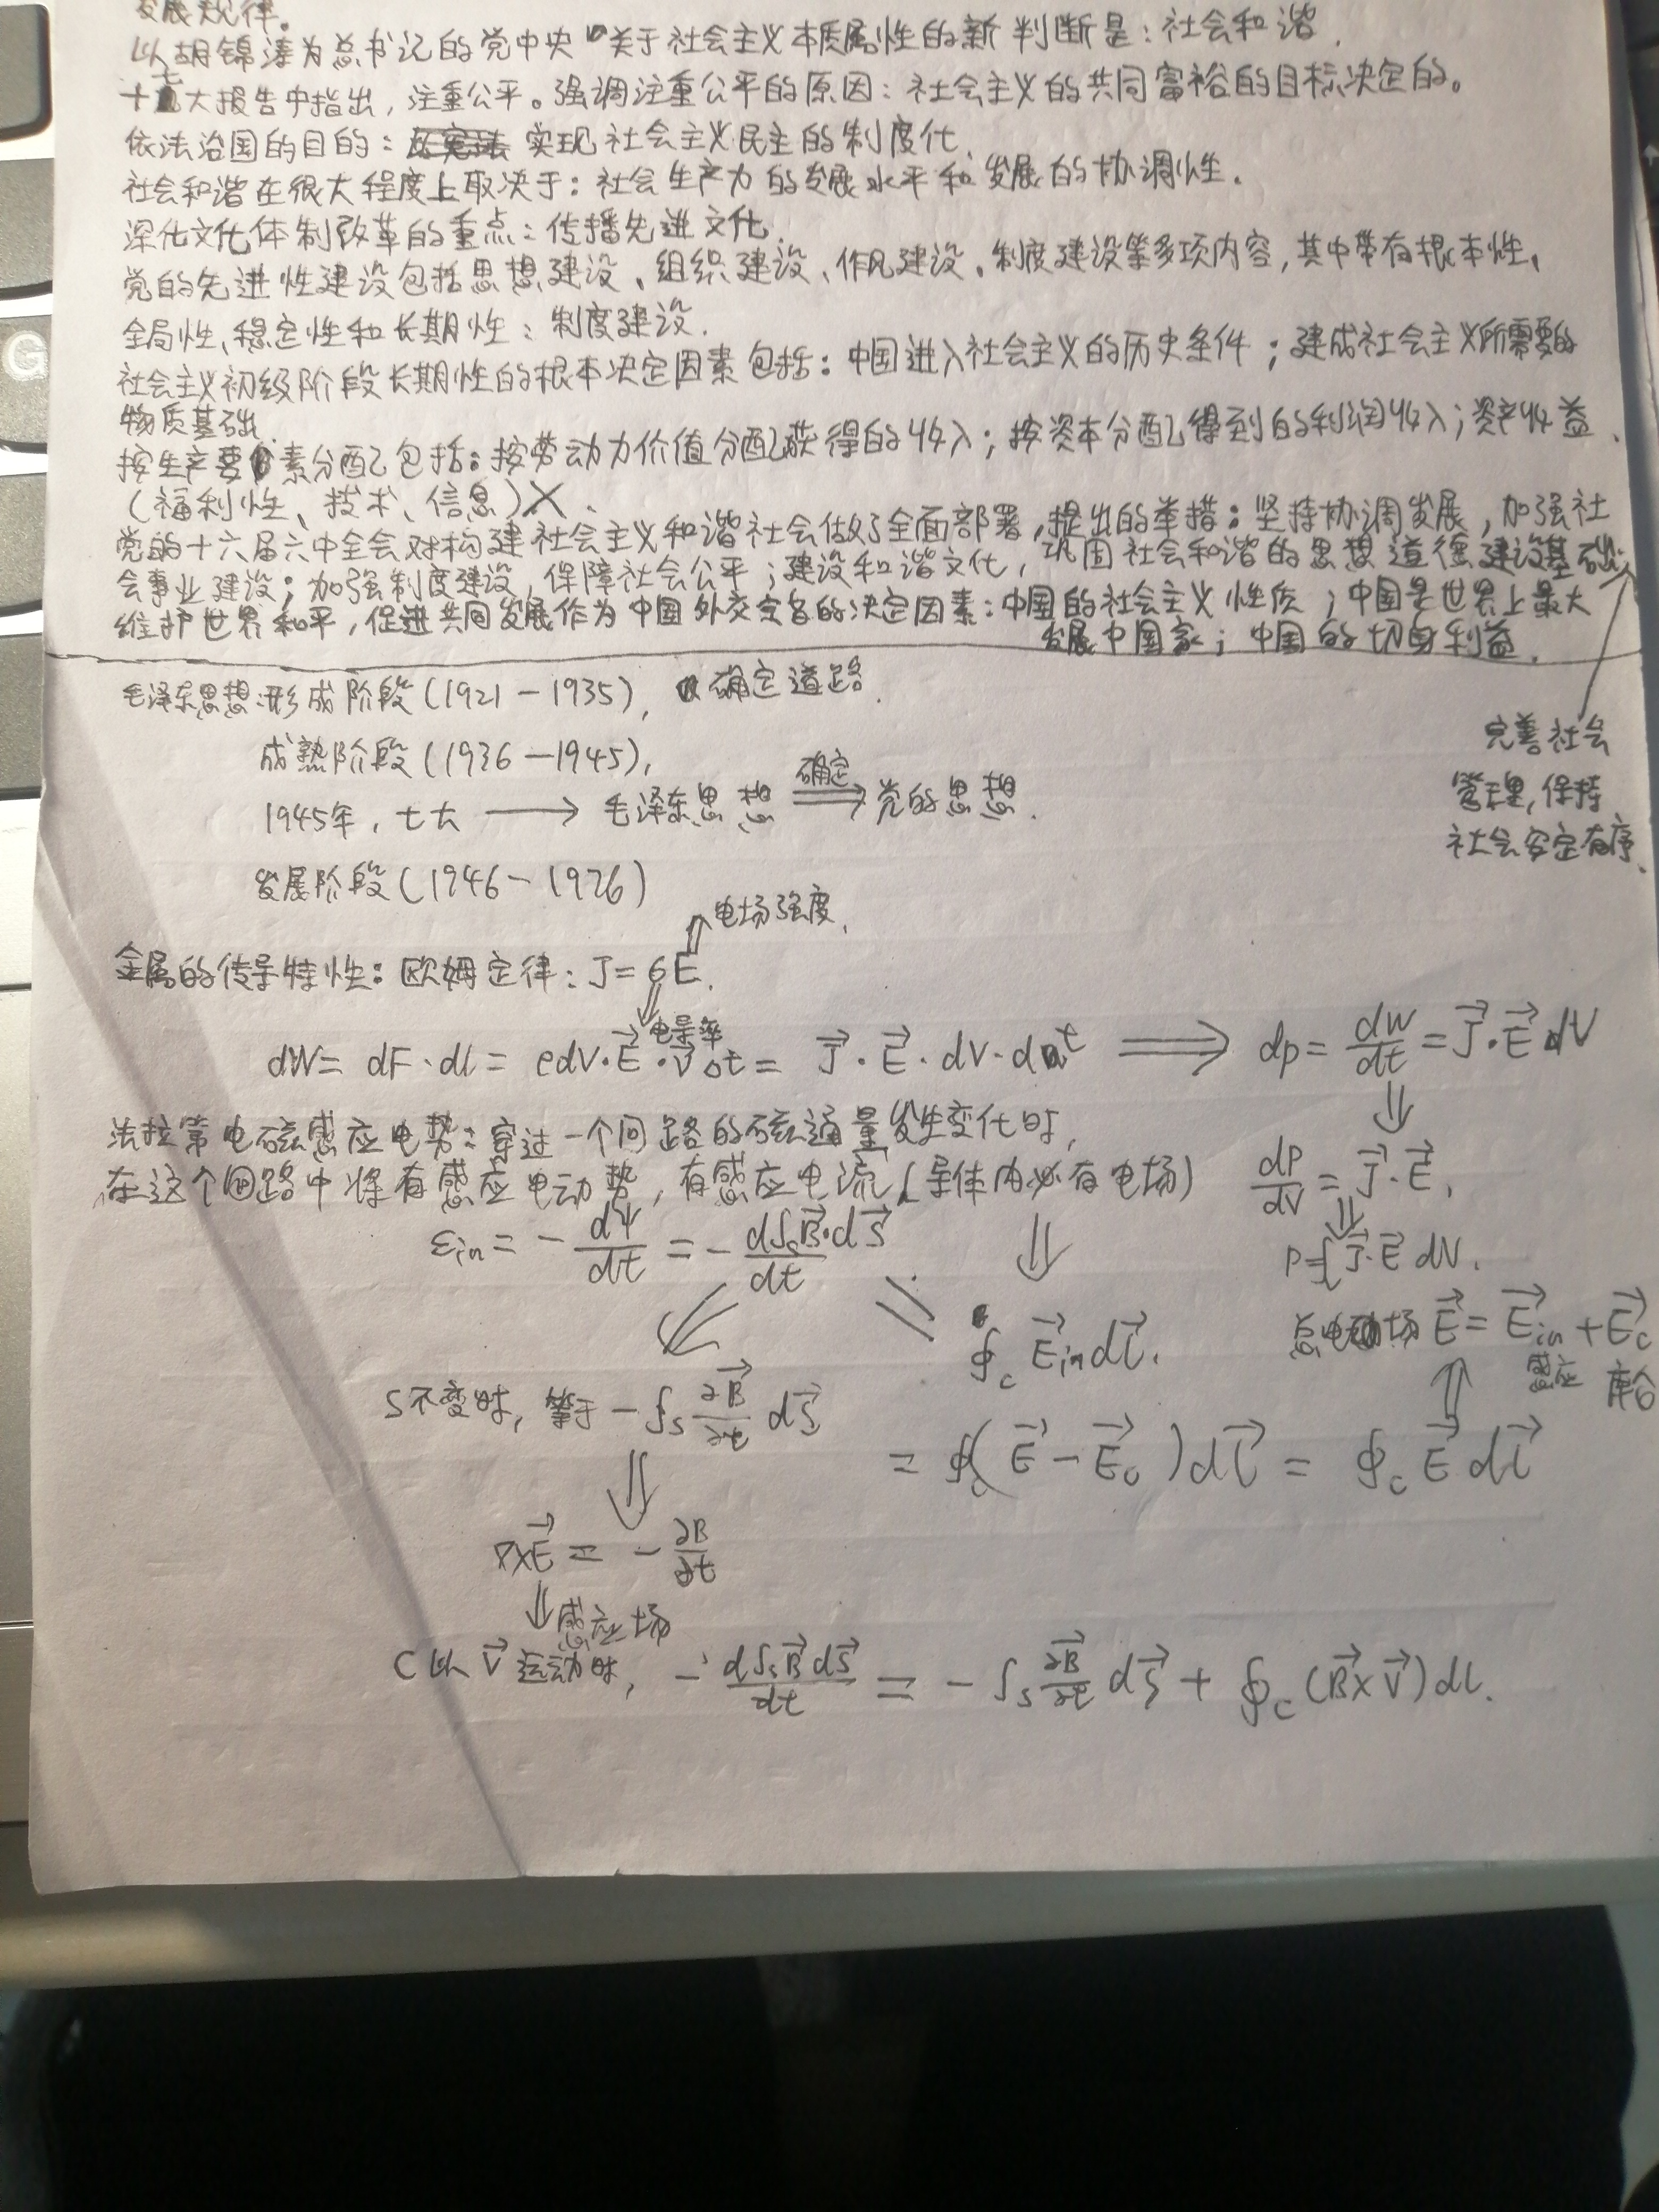 发展规律。
以胡锦涛为总书记的党中央关于社会主义本质属性的新判断是：社会和谐.
十七大报告中指出，注重公平。强调注重公平的原因：社会主义的共同富裕的目标决定的。
依法治国的目的：实现社会主义民主的制度化.
社会和谐在很大程度上取决于：社会生产力的发展水平和发展的协调性.
深化文化体制改革的重点：传播先进文化.
党的先进性建设包括思想建设、组织建设、作风建设、制度建设等多项内容，其中带有根本性、
全局性、稳定性和长期性：制度建设.
社会主义初级阶段长期性的根本决定因素包括：中国进入社会主义的历史条件；建成社会主义所需要的
物质基础.
按生产要素分配包括：按劳动力价值分配获得的收入；按资本分配得到的利润收入；资产收益.
(福利性、技术、信息)X.
党的十六届六中全会对构建社会主义和谐社会做了全面部署，提出的举措：坚持协调发展，加强社
会事业建设；加强制度建设，保障社会公平；建设和谐文化，巩固社会和谐的思想道德建设基础
维护世界和平，促进共同发展作为中国外交宗旨的决定因素：中国的社会主义性质；中国是世界上最大
发展中国家；中国的切身利益.
完善社会
管理，保持
社会安定有序.
毛泽东思想：形成阶段(1921-1935)，确定道路.
成熟阶段(1936-1945)，
1945年，七大 → 毛泽东思想 确定⇒ 党的思想.
发展阶段(1946-1976)
电场强度.
金属的传导特性：欧姆定律：J=σE.
电导率
dW= dF·dl = ρdV·E⃗·v⃗ Δt = J⃗·E⃗·dV·dt ⟹ dp= dW/dt = J⃗·E⃗ dV
⇓
法拉第电磁感应电势：穿过一个回路的磁通量发生变化时，
在这个回路中将有感应电动势，有感应电流(导体内必有电场) dP/dV = J⃗·E⃗.
ε_in = -dψ/dt = -d∫_S B⃗·dS⃗/dt ⇓ P=∫J⃗·E⃗ dV.
∮_c E⃗_in dl⃗. 总电场 E⃗ = E⃗_in + E⃗_c
感应 库仑
S不变时，等于 -∫_S ∂B⃗/∂t dS⃗
= ∮_c(E⃗-E⃗_c)dl⃗ = ∮_c E⃗ dl⃗
∇×E⃗ = -∂B/∂t
⇓感应场
C以v⃗运动时，-d∫_S B⃗ dS⃗/dt = -∫_S ∂B⃗/∂t dS⃗ + ∮_c (B⃗×v⃗)dl.